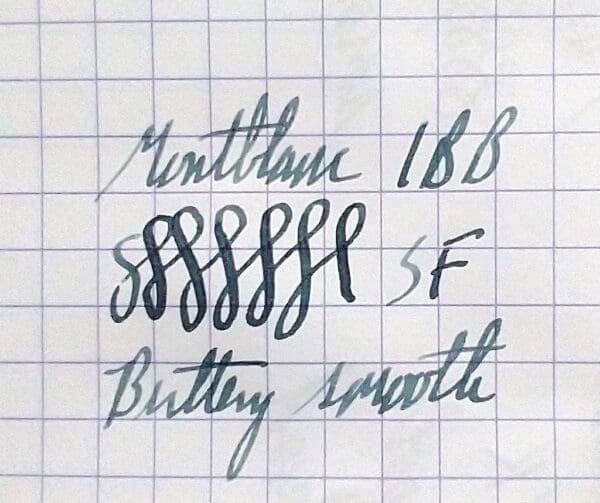 Montblanc 1BB
SF
Buttery smooth